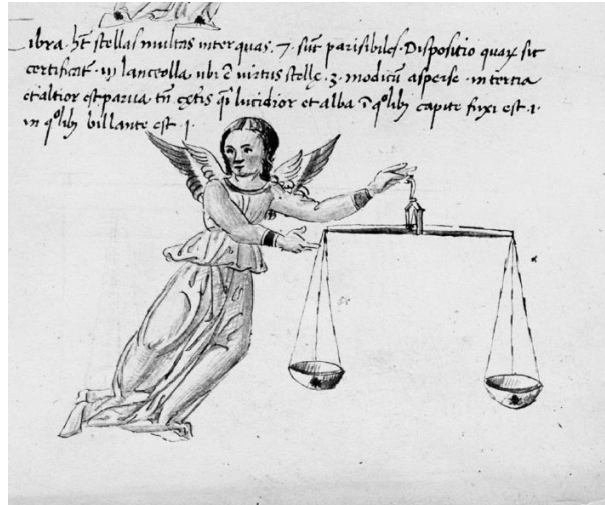 ibra. hēt stellas multas inter quas. 7. sūt parisibiles. Dispositio quaꝝ sic
certificat᷑. in lanceolla ubi ē virtus stellę. 3. modicū asperse. in tertia
et altior est parua tn̄ cęt̄is lucidior et alba capite fuxi est. 1.
in qͦlibꝫ billante est. 1.